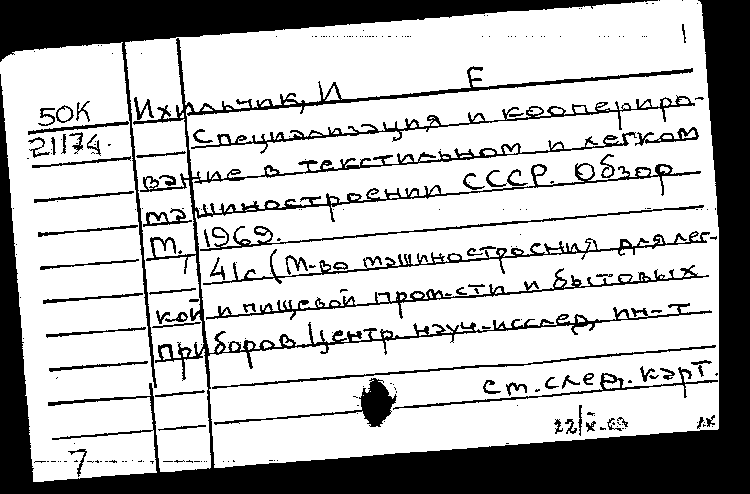 1
50К Ихильчик, И Е
21174. Специализация и коопериро-
вание в текстильном и легком
машиностроении СССР. Обзор
М., 1969.
41с (М-во машиностроения для лег-
кой и пищевой пром-сти и бытовых
приборов Центр. науч.-исслед. ин-т
см. след. карт.
22/X-69
7